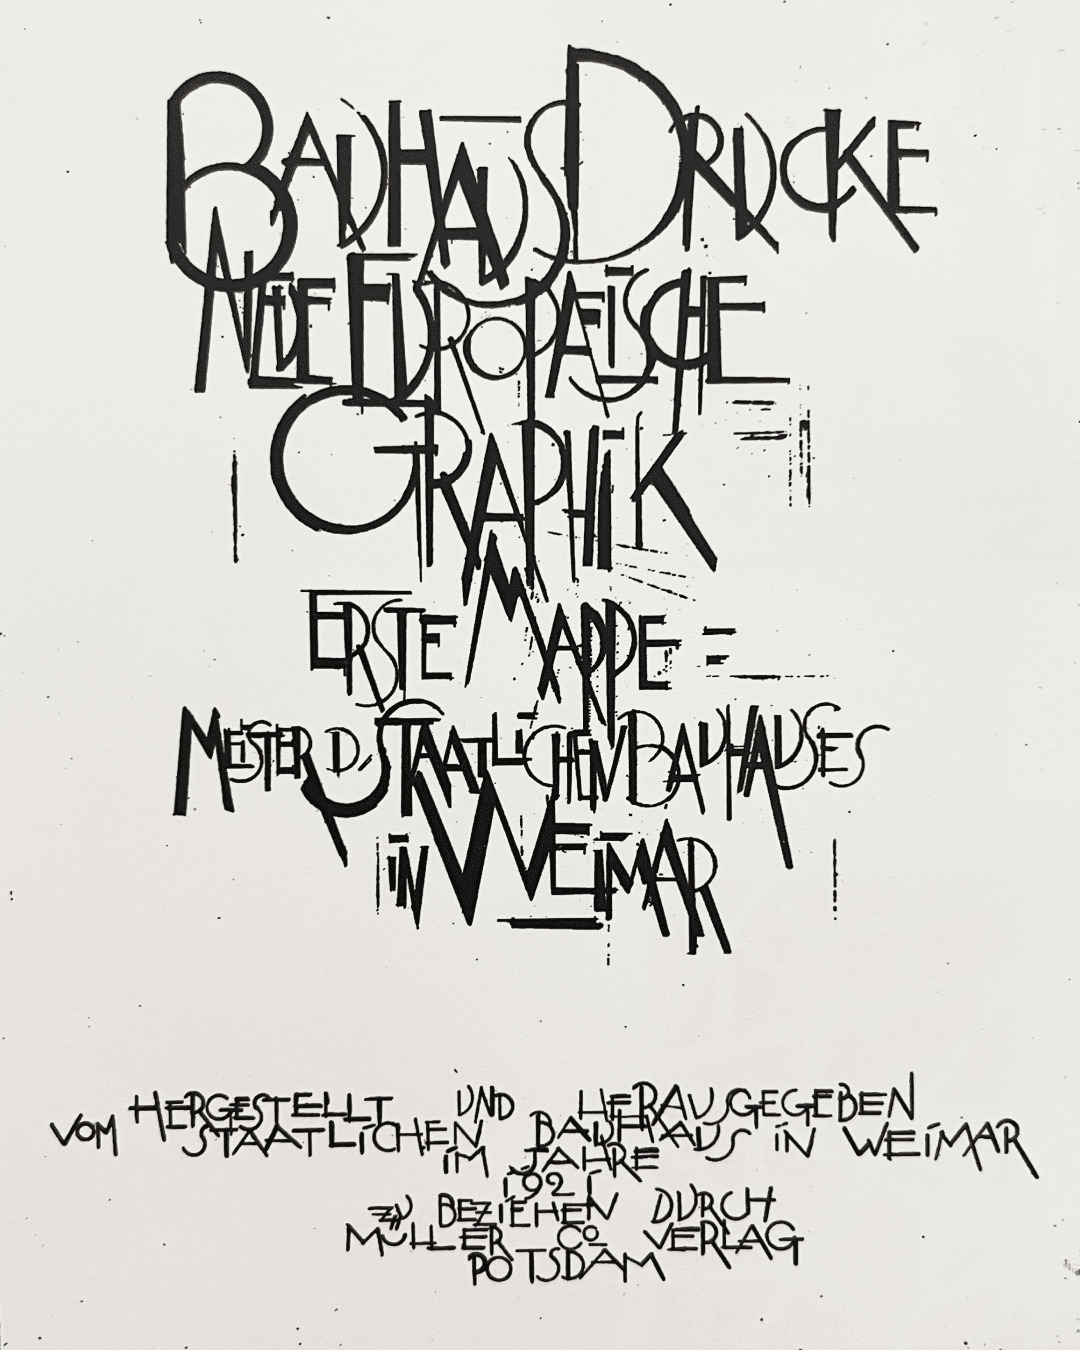 BAUHAUS DRUCKE
NEUE EUROPAEISCHE
GRAPHIK
ERSTE MAPPE
MEISTER D. STAATLICHEN BAUHAUSES
IN WEIMAR
HERGESTELLT UND HERAUSGEGEBEN
VOM STAATLICHEN BAUHAUS IN WEIMAR
IM JAHRE
1921
ZU BEZIEHEN DURCH
MÜLLER Co VERLAG
POTSDAM